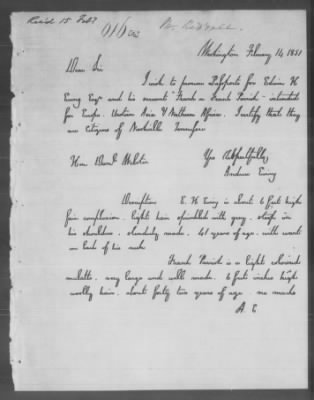 Rec'd 15 Feb?
Washington February 14, 1851
Dear Sir
I wish to procure Passports for Edwin H
Ewing Esqr and his servant Frank or Frank Parrish - intended
for Europe. Western Asia & Northern Africa. I certify that they
are Citizens of Nashville Tennessee
Yrs Respectfully,
Hon Danl Webster
Andrew Ewing
Description E. H. Ewing is about 6 feet high
fair complexion. Light hair sprinkled with grey. stoops in
his shoulders. slenderly made. 41 years of age. with
on back of his neck
Frank Parrish is a light colored
mulatto. very large and well made. 6 feet inches high
woolly hair. about forty two years of age. no marks
A. E